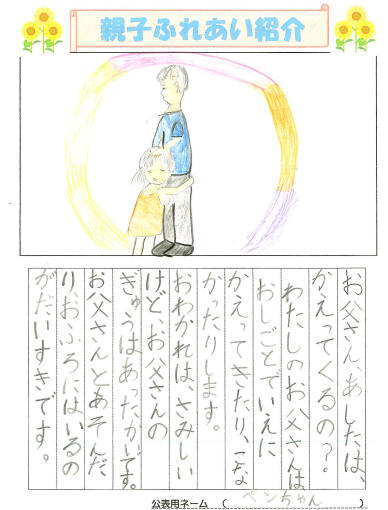 親子ふれあい紹介
お父さん、あしたは、
かえってくるの？
わたしのお父さんは、
おしごとでいえに
かえってきたり、こな
かったりします。
おわかれは、さみしい
けど、お父さんの
ぎゅうはあったかいです。
お父さんとあそんだ
り、おふろにはいるの
がだいすきです。
公表用ネーム （ ペンちゃん ）